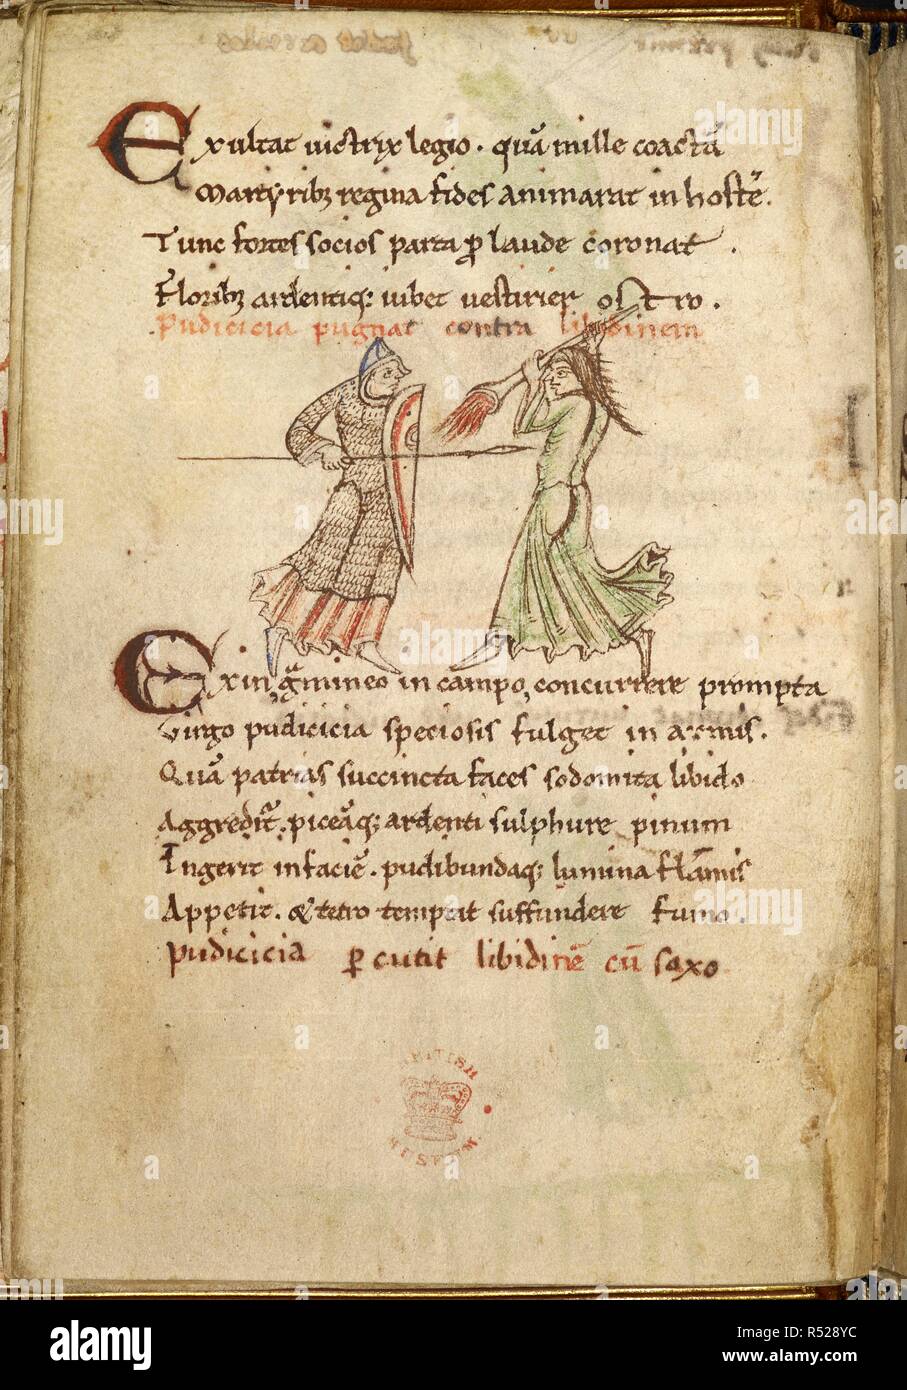 Exultat uictrix legio. quā mille coactā
Martyribꝫ regina fides animarat in hostē.
Tunc fortes socios parta ꝓ laude coronat.
Floribꝫ ardentiqꝫ iubet uestirier ostro.
Pudicicia pugnat contra libidinem
Exin gͣmineo in campo concurrere prompta
Virgo pudicicia speciosis fulget in armis.
Quā patrias succincta faces sodomita libido
Aggredit᷑. piceāqꝫ ardenti sulphure pinum
Ingerit in faciē. pudibundaqꝫ lumina flāmis
Appetit. & tetro temptat suffundere fumo.
Pudicicia ꝑcutit libidinē cū saxo
BRITISH
MUSEUM
alamy
Image ID: R528YC
www.alamy.com